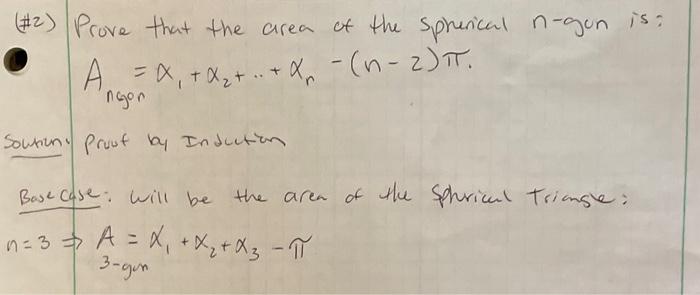 (#2) Prove that the area of the Spherical n-gon is:
A_ngon = α₁ + α₂ + .. + αₙ - (n - 2)π.
Solution: Proof by Induction
Base case: will be the area of the Spherical Triangle:
n = 3 ⇒ A_3-gon = α₁ + α₂ + α₃ - π